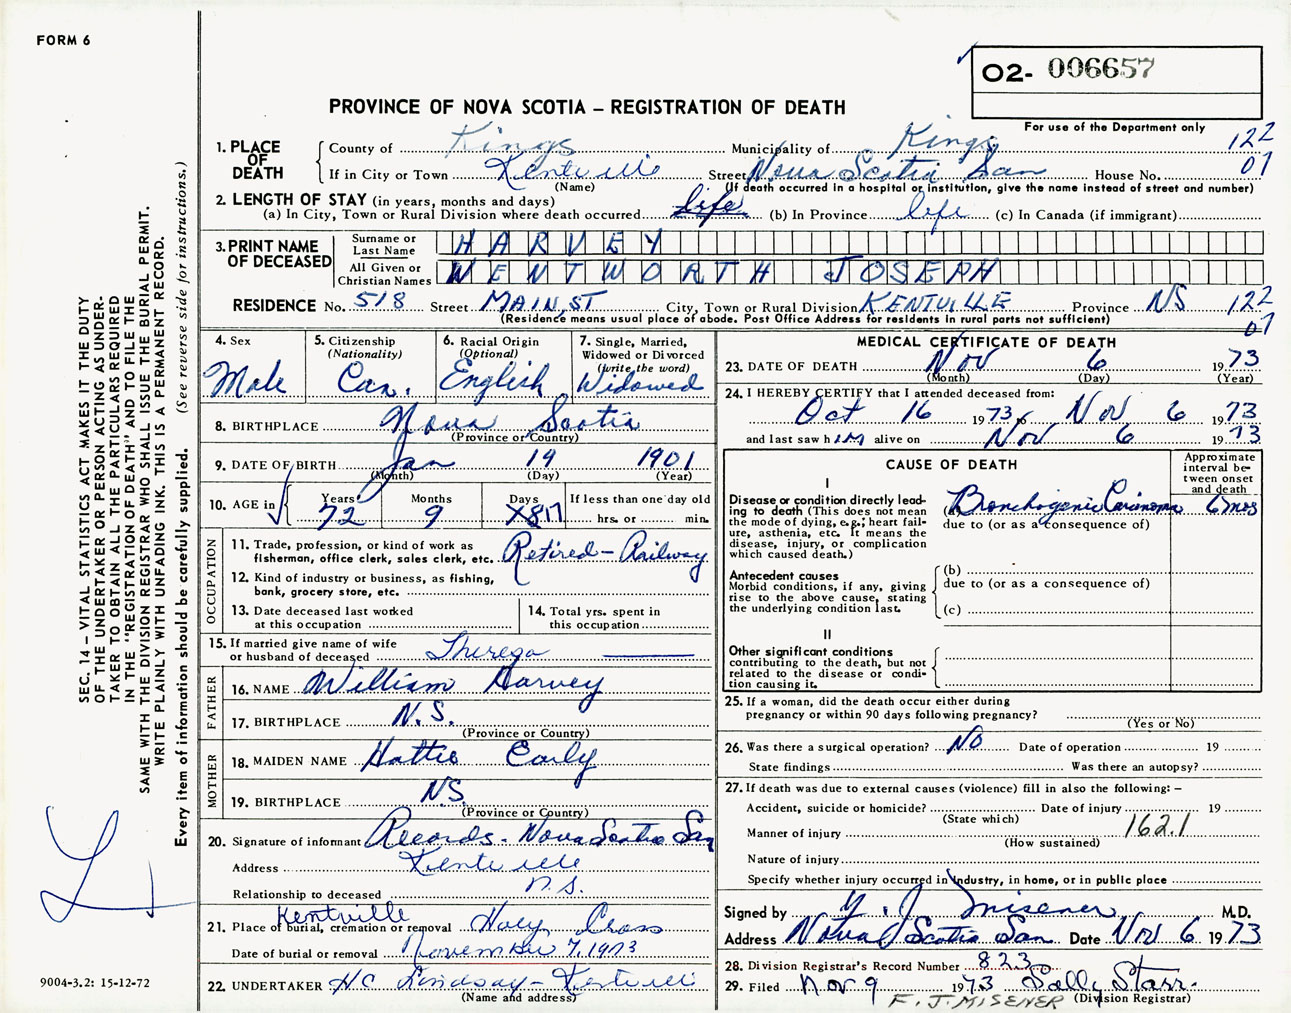 FORM 6
O2- 006657
PROVINCE OF NOVA SCOTIA – REGISTRATION OF DEATH
For use of the Department only
1. PLACE OF DEATH
County of Kings Municipality of Kings 122
If in City or Town Kentville Street Nova Scotia San House No. 07
(Name) (If death occurred in a hospital or institution, give the name instead of street and number)
2. LENGTH OF STAY (in years, months and days)
(a) In City, Town or Rural Division where death occurred life (b) In Province life (c) In Canada (if immigrant)
3. PRINT NAME OF DECEASED
Surname or Last Name HARVEY
All Given or Christian Names WENTWORTH JOSEPH
RESIDENCE No. 518 Street MAIN, ST City, Town or Rural Division KENTVILLE Province NS 122
(Residence means usual place of abode. Post Office Address for residents in rural parts not sufficient) 07
4. Sex
Male
5. Citizenship
(Nationality)
Can.
6. Racial Origin
(Optional)
English
7. Single, Married,
Widowed or Divorced
(write the word)
Widowed
8. BIRTHPLACE Nova Scotia
(Province or Country)
9. DATE OF BIRTH Jan 19 1901
(Month) (Day) (Year)
10. AGE in
Years 72
Months 9
Days 17
If less than one day old
hrs. or min.
OCCUPATION
11. Trade, profession, or kind of work as
fisherman, office clerk, sales clerk, etc. Retired – Railway
12. Kind of industry or business, as fishing,
bank, grocery store, etc.
13. Date deceased last worked
at this occupation
14. Total yrs. spent in
this occupation
15. If married give name of wife
or husband of deceased Theresa
FATHER
16. NAME William Harvey
17. BIRTHPLACE N.S.
(Province or Country)
MOTHER
18. MAIDEN NAME Hattie Early
19. BIRTHPLACE N.S.
(Province or Country)
20. Signature of informant Records - Nova Scotia San
Address Kentville
N.S.
Relationship to deceased
21. Place of burial, cremation or removal Kentville Holy Cross
Date of burial or removal November 7, 1973
22. UNDERTAKER HC Lindsay – Kentville
(Name and address)
MEDICAL CERTIFICATE OF DEATH
23. DATE OF DEATH Nov 6 1973
(Month) (Day) (Year)
24. I HEREBY CERTIFY that I attended deceased from:
Oct 16 1973 to Nov 6 1973
and last saw him alive on Nov 6 1973
CAUSE OF DEATH
Approximate
interval be-
tween onset
and death
I
Disease or condition directly lead-
ing to death (This does not
mean the mode of dying, e.g.; heart fail-
ure, asthenia, etc. It means the
disease, injury, or complication
which caused death.)
(a) Bronchogenic Carcinoma 6 mos
due to (or as a consequence of)
Antecedent causes
Morbid conditions, if any, giving
rise to the above cause, stating
the underlying condition last.
(b)
due to (or as a consequence of)
(c)
II
Other significant conditions
contributing to the death, but not
related to the disease or condi-
tion causing it.
25. If a woman, did the death occur either during
pregnancy or within 90 days following pregnancy?
(Yes or No)
26. Was there a surgical operation? No Date of operation 19
State findings Was there an autopsy?
27. If death was due to external causes (violence) fill in also the following: –
Accident, suicide or homicide? Date of injury 19
(State which)
Manner of injury 162.1
(How sustained)
Nature of injury
Specify whether injury occurred in industry, in home, or in public place
Signed by F. J. Misener M.D.
Address Nova Scotia San Date Nov 6 1973
28. Division Registrar's Record Number 823
29. Filed Nov 9 1973 Sally Starr.
F. J. MISENER (Division Registrar)
SEC. 14 – VITAL STATISTICS ACT MAKES IT THE DUTY
OF THE UNDERTAKER OR PERSON ACTING AS UNDER-
TAKER TO OBTAIN ALL THE PARTICULARS REQUIRED
IN THE "REGISTRATION OF DEATH" AND TO FILE THE
SAME WITH THE DIVISION REGISTRAR WHO SHALL ISSUE THE BURIAL PERMIT.
WRITE PLAINLY WITH UNFADING INK. THIS IS A PERMANENT RECORD.
Every item of information should be carefully supplied. (See reverse side for instructions.)
9004-3.2: 15-12-72